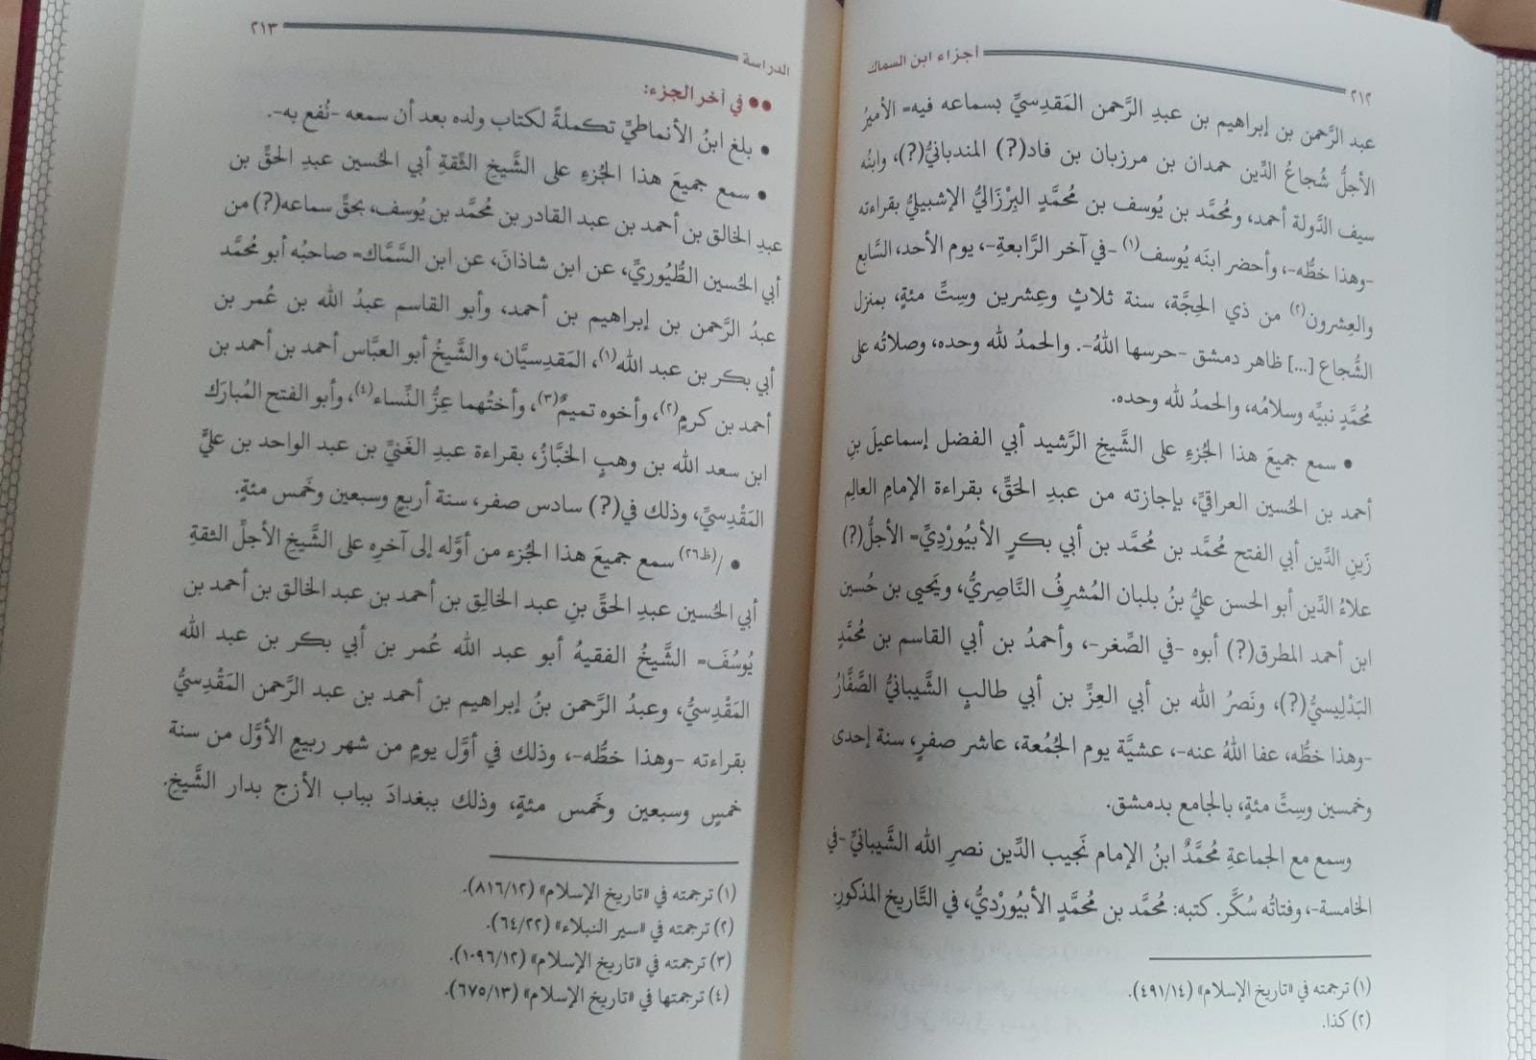 ٢١٢
أجزاء ابن السماك
عبد الرَّحمن بن إبراهيم بن عبدِ الرَّحمن المَقدِسيِّ بسماعه فيه= الأميرُ
الأجلُّ شُجاعُ الدِّين حمدان بن مرزبان بن فاد(?) المندبانيُّ(?)، وابنُه
سيف الدَّولة أحمد، ومُحمَّد بن يُوسف بن مُحمَّدٍ البِرْزَاليُّ الإشبيليُّ بقراءته
-وهذا خطُّه-، وأحضر ابنَه يُوسف(١) -في آخر الرَّابعةِ-، يوم الأحد، السَّابع
والعِشرون(٢) من ذي الحِجَّة، سنة ثلاثٍ وعِشرين وسِتِّ مئةٍ، بمنزل
الشُّجاع [...] ظاهر دمشق -حرسها اللهُ-. والحمدُ لله وحده، وصلاتُه على
مُحمَّدٍ نبيِّه وسلامُه، والحمدُ لله وحده.
• سمع جميعَ هذا الجُزءِ على الشَّيخِ الرَّشيد أبي الفضل إسماعيلَ بنِ
أحمد بن الحُسين العراقيِّ، بإجازته من عبدِ الحَقِّ، بقراءة الإمامِ العالِم
زَينِ الدِّين أبي الفتح مُحمَّد بن مُحمَّد بن أبي بكرٍ الأبيُورْدِيِّ= الأجلُّ(?)
علاءُ الدِّين أبو الحسن عليُّ بنُ بلبان المُشرِفُ النَّاصِريُّ، ويَحيى بن حُسين
ابن أحمد المطرق(?) أبوه -في الصِّغر-، وأحمدُ بن أبي القاسم بن مُحمَّدٍ
البَدْلِيسيُّ(?)، ونَصرُ الله بن أبي العِزِّ بن أبي طالبٍ الشَّيبانيُّ الصَّفَّارُ
-وهذا خطُّه، عفا اللهُ عنه-، عشيَّة يوم الجُمُعة، عاشر صفرٍ، سنة إحدى
وخمسين وسِتِّ مئةٍ، بالجامع بدمشق.
وسمع مع الجماعةِ مُحمَّدٌ ابنُ الإمام نَجيب الدِّين نصرِ الله الشَّيبانيِّ -في
الخامسة-، وفتاتُه سُكَّر. كتبه: مُحمَّد بن مُحمَّدٍ الأبيُورْديُّ، في التَّاريخ المذكورِ.
(١) ترجمته في «تاريخ الإسلام» (٤٩١/١٤).
(٢) كذا.
الدراسة
٢١٣
●● في آخر الجزء:
• بلغ ابنُ الأنماطيِّ تكملةً لكتاب ولده بعد أن سمعه -نُفع به-.
• سمع جميعَ هذا الجُزءِ على الشَّيخِ الثِّقةِ أبي الحُسين عبدِ الحقِّ بن
عبدِ الخالق بن أحمد بن عبد القادر بن مُحمَّد بن يُوسف، بحقِّ سماعه(?) من
أبي الحُسين الطُّيُوريِّ، عن ابن شاذانَ، عن ابن السَّمَّاك= صاحبُه أبو مُحمَّد
عبدُ الرَّحمن بن إبراهيم بن أحمد، وأبو القاسم عبدُ الله بن عُمر بن
أبي بكر بن عبد الله(١)، المَقدِسيَّان، والشَّيخُ أبو العبَّاس أحمد بن أحمد بن
أحمد بن كرمٍ(٢)، وأخوه تميمٌ(٣)، وأختُهما عِزُّ النِّساء(٤)، وأبو الفتح المُبارَك
ابن سعد الله بن وهبٍ الخبَّازُ، بقراءة عبدِ الغَنيِّ بن عبد الواحد بن عليٍّ
المَقْدِسيِّ، وذلك في(?) سادس صفر، سنة أربعٍ وسبعين وخَمس مئةٍ.
• /(ظ٢٦) سمع جميعَ هذا الجُزء من أوَّله إلى آخرِه على الشَّيخِ الأجلِّ الثقةِ
أبي الحُسين عبدِ الحقِّ بنِ عبد الخالِق بن أحمد بن عبد الخالق بن أحمد بن
يُوسُفَ= الشَّيخُ الفقيهُ أبو عبد الله عُمر بن أبي بكر بن عبد الله
المَقْدِسيُّ، وعبدُ الرَّحمن بنُ إبراهيم بن أحمد بن عبد الرَّحمن المَقْدِسيُّ
بقراءته -وهذا خطُّه-، وذلك في أوَّل يومٍ من شهر ربيعٍ الأوَّل من سنة
خمسٍ وسبعين وخَمس مئةٍ، وذلك ببغدادَ بباب الأزج بدار الشَّيخِ.
(١) ترجمته في «تاريخ الإسلام» (٨١٦/١٢).
(٢) ترجمته في «سير النبلاء» (٦٤/٢٢).
(٣) ترجمته في «تاريخ الإسلام» (١٠٩٦/١٢).
(٤) ترجمتها في «تاريخ الإسلام» (٦٧٥/١٣).